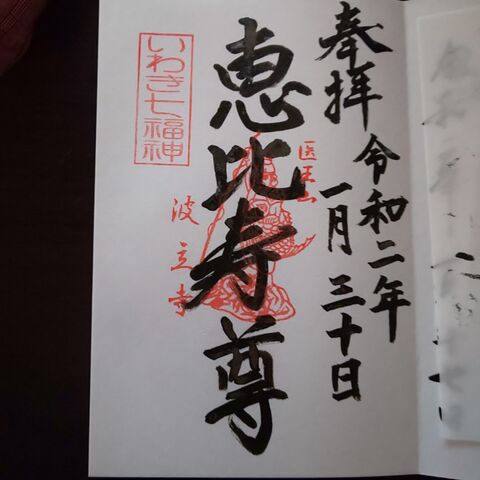 奉拝
令和二年
一月三十日
医王山
恵比寿尊
いわき七福神
波立寺